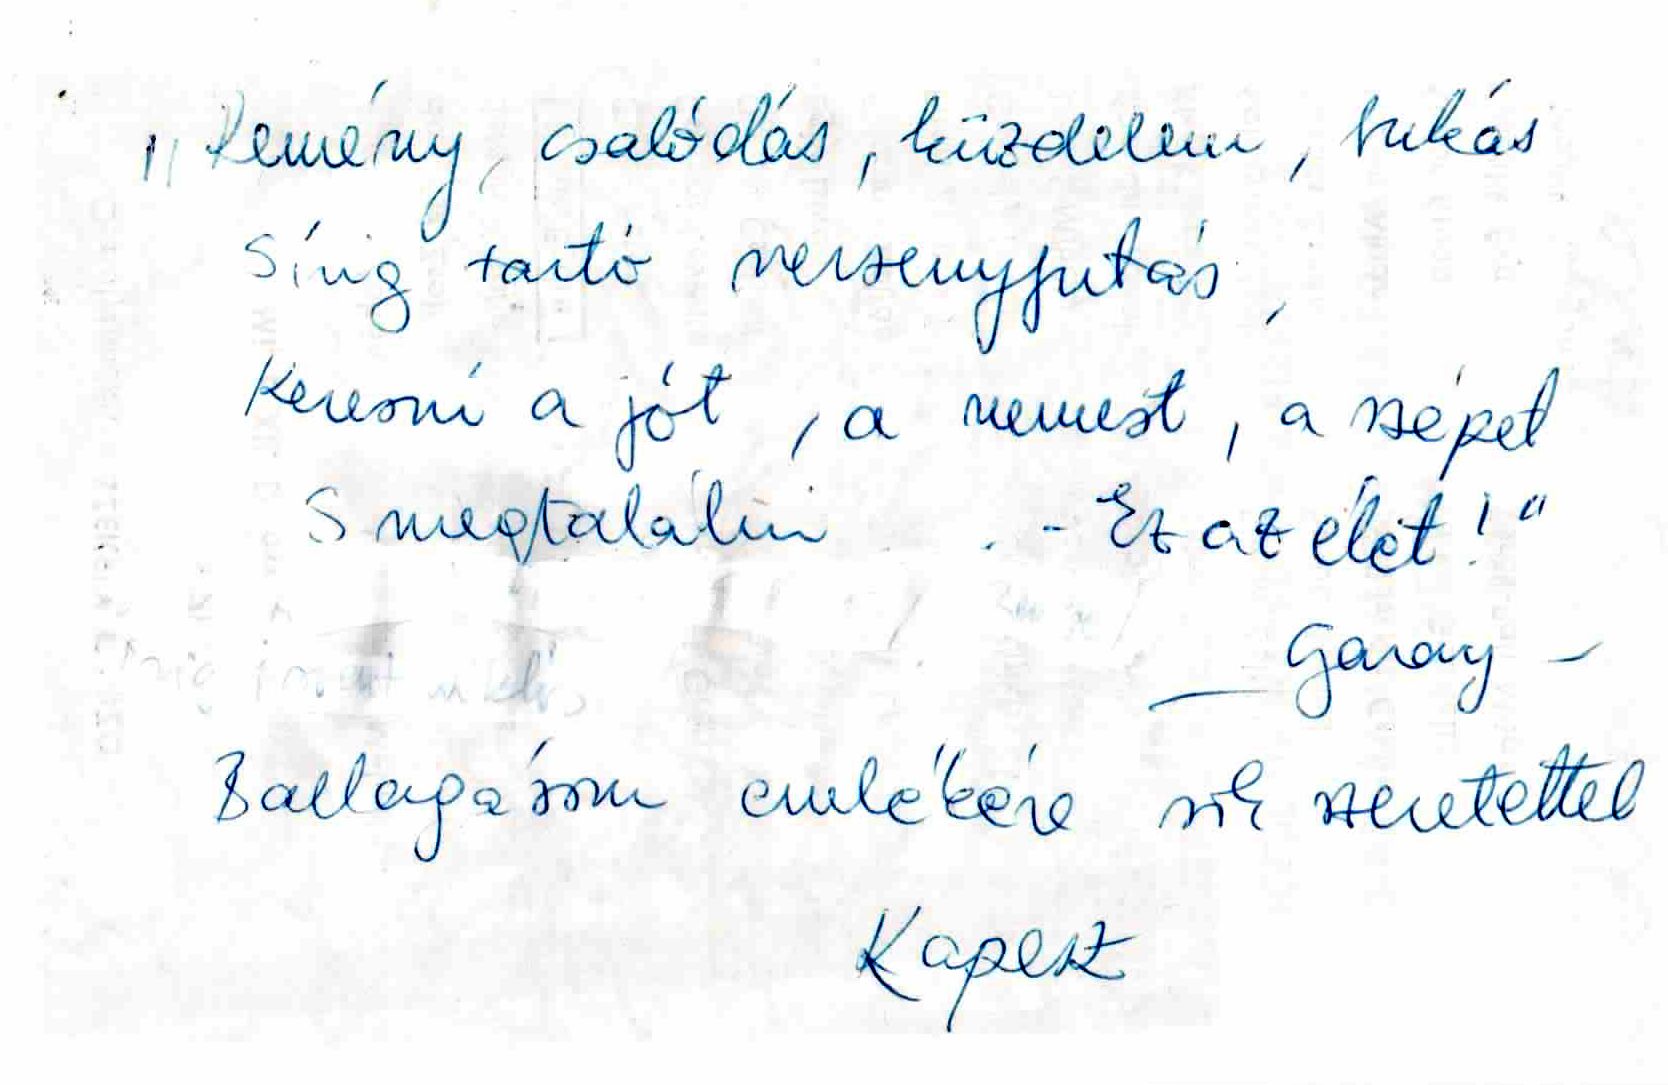 „Remény, csalódás, küzdelem, bukás
Sírig tartó versenyfutás,
Keresni a jót, a nemest, a szépet
S megtalálni .- Ez az élet!"
— Garay —
Ballagásom emlékére sok szeretettel
Kapesz